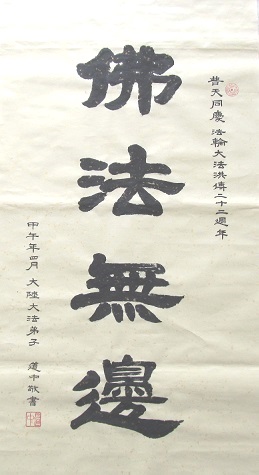 普天同慶 法輪大法洪傳二十二週年
佛法無邊
甲午年四月 大陸大法弟子 道中敬書